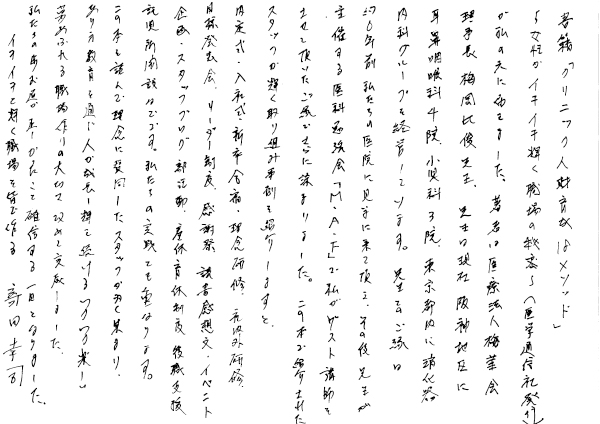 書籍「クリニック人財育成18メソッド」
〜女性がイキイキ輝く職場の秘密〜（医学通信社発行）
が私の元に届きました。著者は医療法人梅華会
理事長 梅岡比俊先生。先生は現在 阪神地区に
耳鼻咽喉科4院、小児科3院、東京都内に消化器
内科グループを経営しています。先生とのご縁は
約10年前 私たちの医院に見学に来て頂き、その後 先生が
主催する医科勉強会「M.A.F」で私がゲスト講師を
させて頂いたご縁でさらに深まりました。この本で紹介された
スタッフが輝く取り組み事例を紹介しますと、
内定式・入社式・新卒合宿・理念研修・院内外研修、
目標発表会、リーダー制度、感謝祭、読書感想文・イベント
企画・スタッフブログ・部活動、産休育休制度、復職支援
託児所開設などです。私たちの実践とも重なります。
この本を読んで理念に共同したスタッフが多く集まり、
あり方教育を通じ人が成長し輝き続けるワクワク楽しい
夢あふれる職場作りの大切さ改めて交感しました。
私たちのあり方は正しかったことを確信する一日となりました。
イキイキと輝く職場を皆で作る 高田幸司